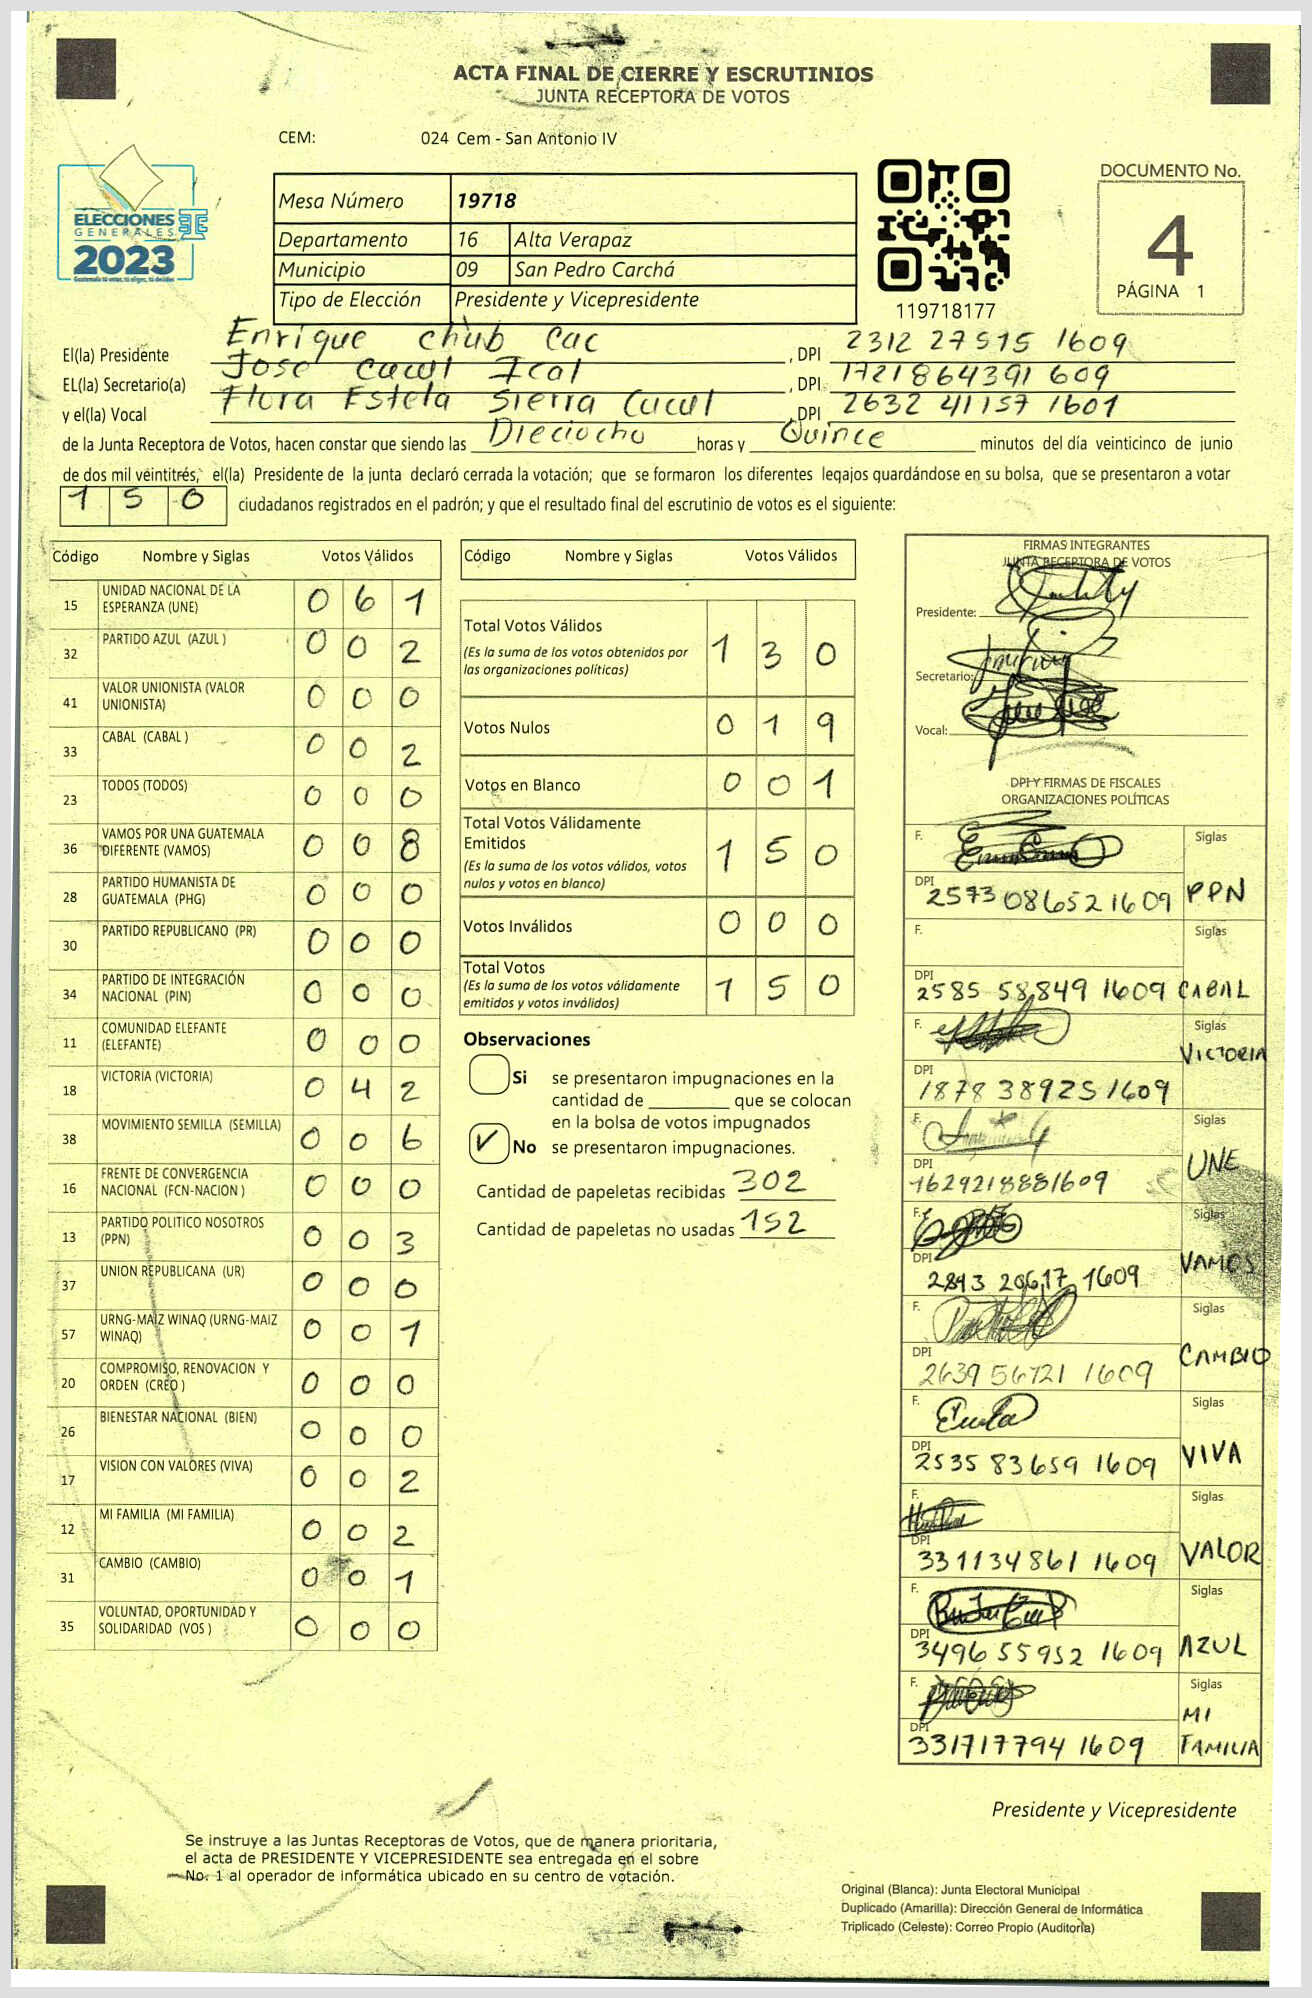 ACTA FINAL DE CIERRE Y ESCRUTINIOS
JUNTA RECEPTORA DE VOTOS
CEM: 024 Cem - San Antonio IV
ELECCIONES
GENERALES
2023
Mesa Número 19718
Departamento 16 Alta Verapaz
Municipio 09 San Pedro Carchá
Tipo de Elección Presidente y Vicepresidente
119718177
DOCUMENTO No.
4
PÁGINA 1
El(la) Presidente Enrique Chub Cac , DPI 2312 27515 1609
EL(la) Secretario(a) Jose Cucul Ical , DPI 1721864391 609
y el(la) Vocal Flora Estela Sierra Cucul , DPI 2632 41157 1601
de la Junta Receptora de Votos, hacen constar que siendo las Dieciocho horas y Quince minutos del día veinticinco de junio
de dos mil veintitrés, el(la) Presidente de la junta declaró cerrada la votación; que se formaron los diferentes legajos guardándose en su bolsa, que se presentaron a votar
150 ciudadanos registrados en el padrón; y que el resultado final del escrutinio de votos es el siguiente:
Código Nombre y Siglas Votos Válidos
15 UNIDAD NACIONAL DE LA ESPERANZA (UNE) 0 6 1
32 PARTIDO AZUL (AZUL ) 0 0 2
41 VALOR UNIONISTA (VALOR UNIONISTA) 0 0 0
33 CABAL (CABAL ) 0 0 2
23 TODOS (TODOS) 0 0 0
36 VAMOS POR UNA GUATEMALA DIFERENTE (VAMOS) 0 0 8
28 PARTIDO HUMANISTA DE GUATEMALA (PHG) 0 0 0
30 PARTIDO REPUBLICANO (PR) 0 0 0
34 PARTIDO DE INTEGRACIÓN NACIONAL (PIN) 0 0 0
11 COMUNIDAD ELEFANTE (ELEFANTE) 0 0 0
18 VICTORIA (VICTORIA) 0 4 2
38 MOVIMIENTO SEMILLA (SEMILLA) 0 0 6
16 FRENTE DE CONVERGENCIA NACIONAL (FCN-NACION ) 0 0 0
13 PARTIDO POLITICO NOSOTROS (PPN) 0 0 3
37 UNION REPUBLICANA (UR) 0 0 0
57 URNG-MAIZ WINAQ (URNG-MAIZ WINAQ) 0 0 1
20 COMPROMISO, RENOVACION Y ORDEN (CREO ) 0 0 0
26 BIENESTAR NACIONAL (BIEN) 0 0 0
17 VISION CON VALORES (VIVA) 0 0 2
12 MI FAMILIA (MI FAMILIA) 0 0 2
31 CAMBIO (CAMBIO) 0 0 1
35 VOLUNTAD, OPORTUNIDAD Y SOLIDARIDAD (VOS ) 0 0 0
Código Nombre y Siglas Votos Válidos
Total Votos Válidos 1 3 0
(Es la suma de los votos obtenidos por
las organizaciones políticas)
Votos Nulos 0 1 9
Votos en Blanco 0 0 1
Total Votos Válidamente
Emitidos 1 5 0
(Es la suma de los votos válidos, votos
nulos y votos en blanco)
Votos Inválidos 0 0 0
Total Votos 1 5 0
(Es la suma de los votos válidamente
emitidos y votos inválidos)
Observaciones
Si se presentaron impugnaciones en la
cantidad de ________ que se colocan
en la bolsa de votos impugnados
No se presentaron impugnaciones.
Cantidad de papeletas recibidas 302
Cantidad de papeletas no usadas 152
FIRMAS INTEGRANTES
JUNTA RECEPTORA DE VOTOS
Presidente:
Secretario:
Vocal:
DPI Y FIRMAS DE FISCALES
ORGANIZACIONES POLÍTICAS
F. Siglas
DPI 2573 08652 1609 PPN
F. Siglas
DPI 2585 58849 1609 CABAL
F. Siglas
VICTORIA
DPI 1878 38925 1609
F. Siglas
UNE
DPI 1629218881609
F. Siglas
VAMOS
DPI 2843 20617 1609
F. Siglas
CAMBIO
DPI 2639 56721 1609
F. Siglas
DPI 2535 83659 1609 VIVA
F. Siglas
DPI 331134861 1609 VALOR
F. Siglas
DPI 3496 55952 1609 AZUL
F. Siglas
MI
DPI 331717794 1609 FAMILIA
Presidente y Vicepresidente
Se instruye a las Juntas Receptoras de Votos, que de manera prioritaria,
el acta de PRESIDENTE Y VICEPRESIDENTE sea entregada en el sobre
No. 1 al operador de informática ubicado en su centro de votación.
Original (Blanca): Junta Electoral Municipal
Duplicado (Amarilla): Dirección General de Informática
Triplicado (Celeste): Correo Propio (Auditoría)